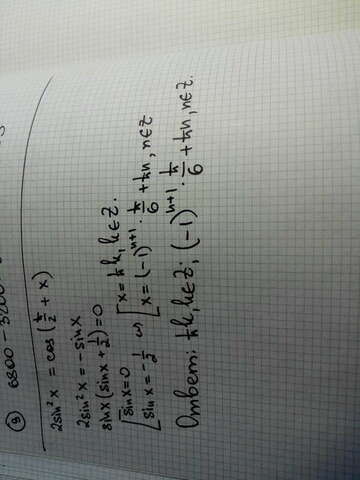 ⑨ 6800 - 3200
2sin²x = cos(π/2 + x)
2sin²x = -sinx
sinx(sinx + 1/2) = 0
[sinx=0 [x = πk, k∈Z.
[sinx = -1/2 ⇔ [x = (-1)ⁿ⁺¹ · π/6 + πn, n∈Z
Ответ: πk, k∈Z; (-1)ⁿ⁺¹ · π/6 + πn, n∈Z.